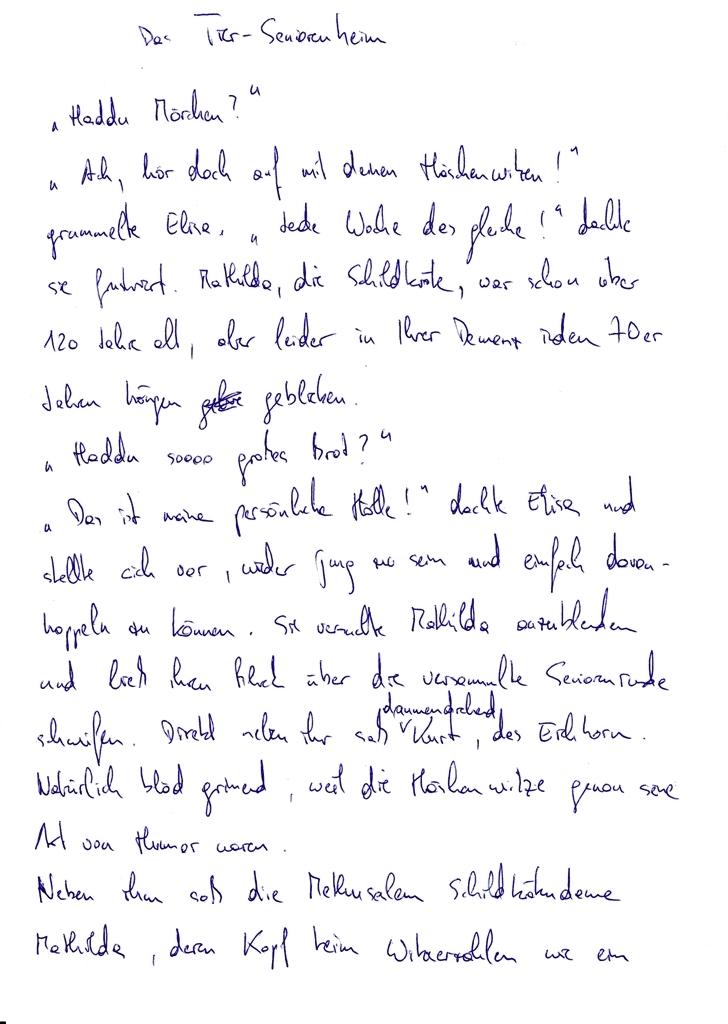 Das Tier-Seniorenheim
„Haddu Mörchen?“
„Ach, hör doch auf mit deinen Häschenwitzen!“
grummelte Elise. „Jede Woche das gleiche!“ dachte
sie frustriert. Mathilda, die Schildkröte, war schon über
120 Jahre alt, aber leider in Ihrer Demenz in den 70er
Jahren hängen geblieben.
„Haddu soooo großes Brot?“
„Das ist meine persönliche Hölle!“ dachte Elise und
stellte sich vor, wieder jung zu sein und einfach davon-
hoppeln zu können. Sie versuchte Mathilda auszublenden
und ließ ihren Blick über die versammelte Seniorenrunde
schweifen. Direkt neben ihr saß daumendrehend Kurt, das Eichhorn.
Natürlich blöd grinsend, weil die Häschenwitze genau seine
Art von Humor waren.
Neben ihm saß die Methusalem Schildkrötendame
Mathilda, deren Kopf beim Witzeerzählen wie ein